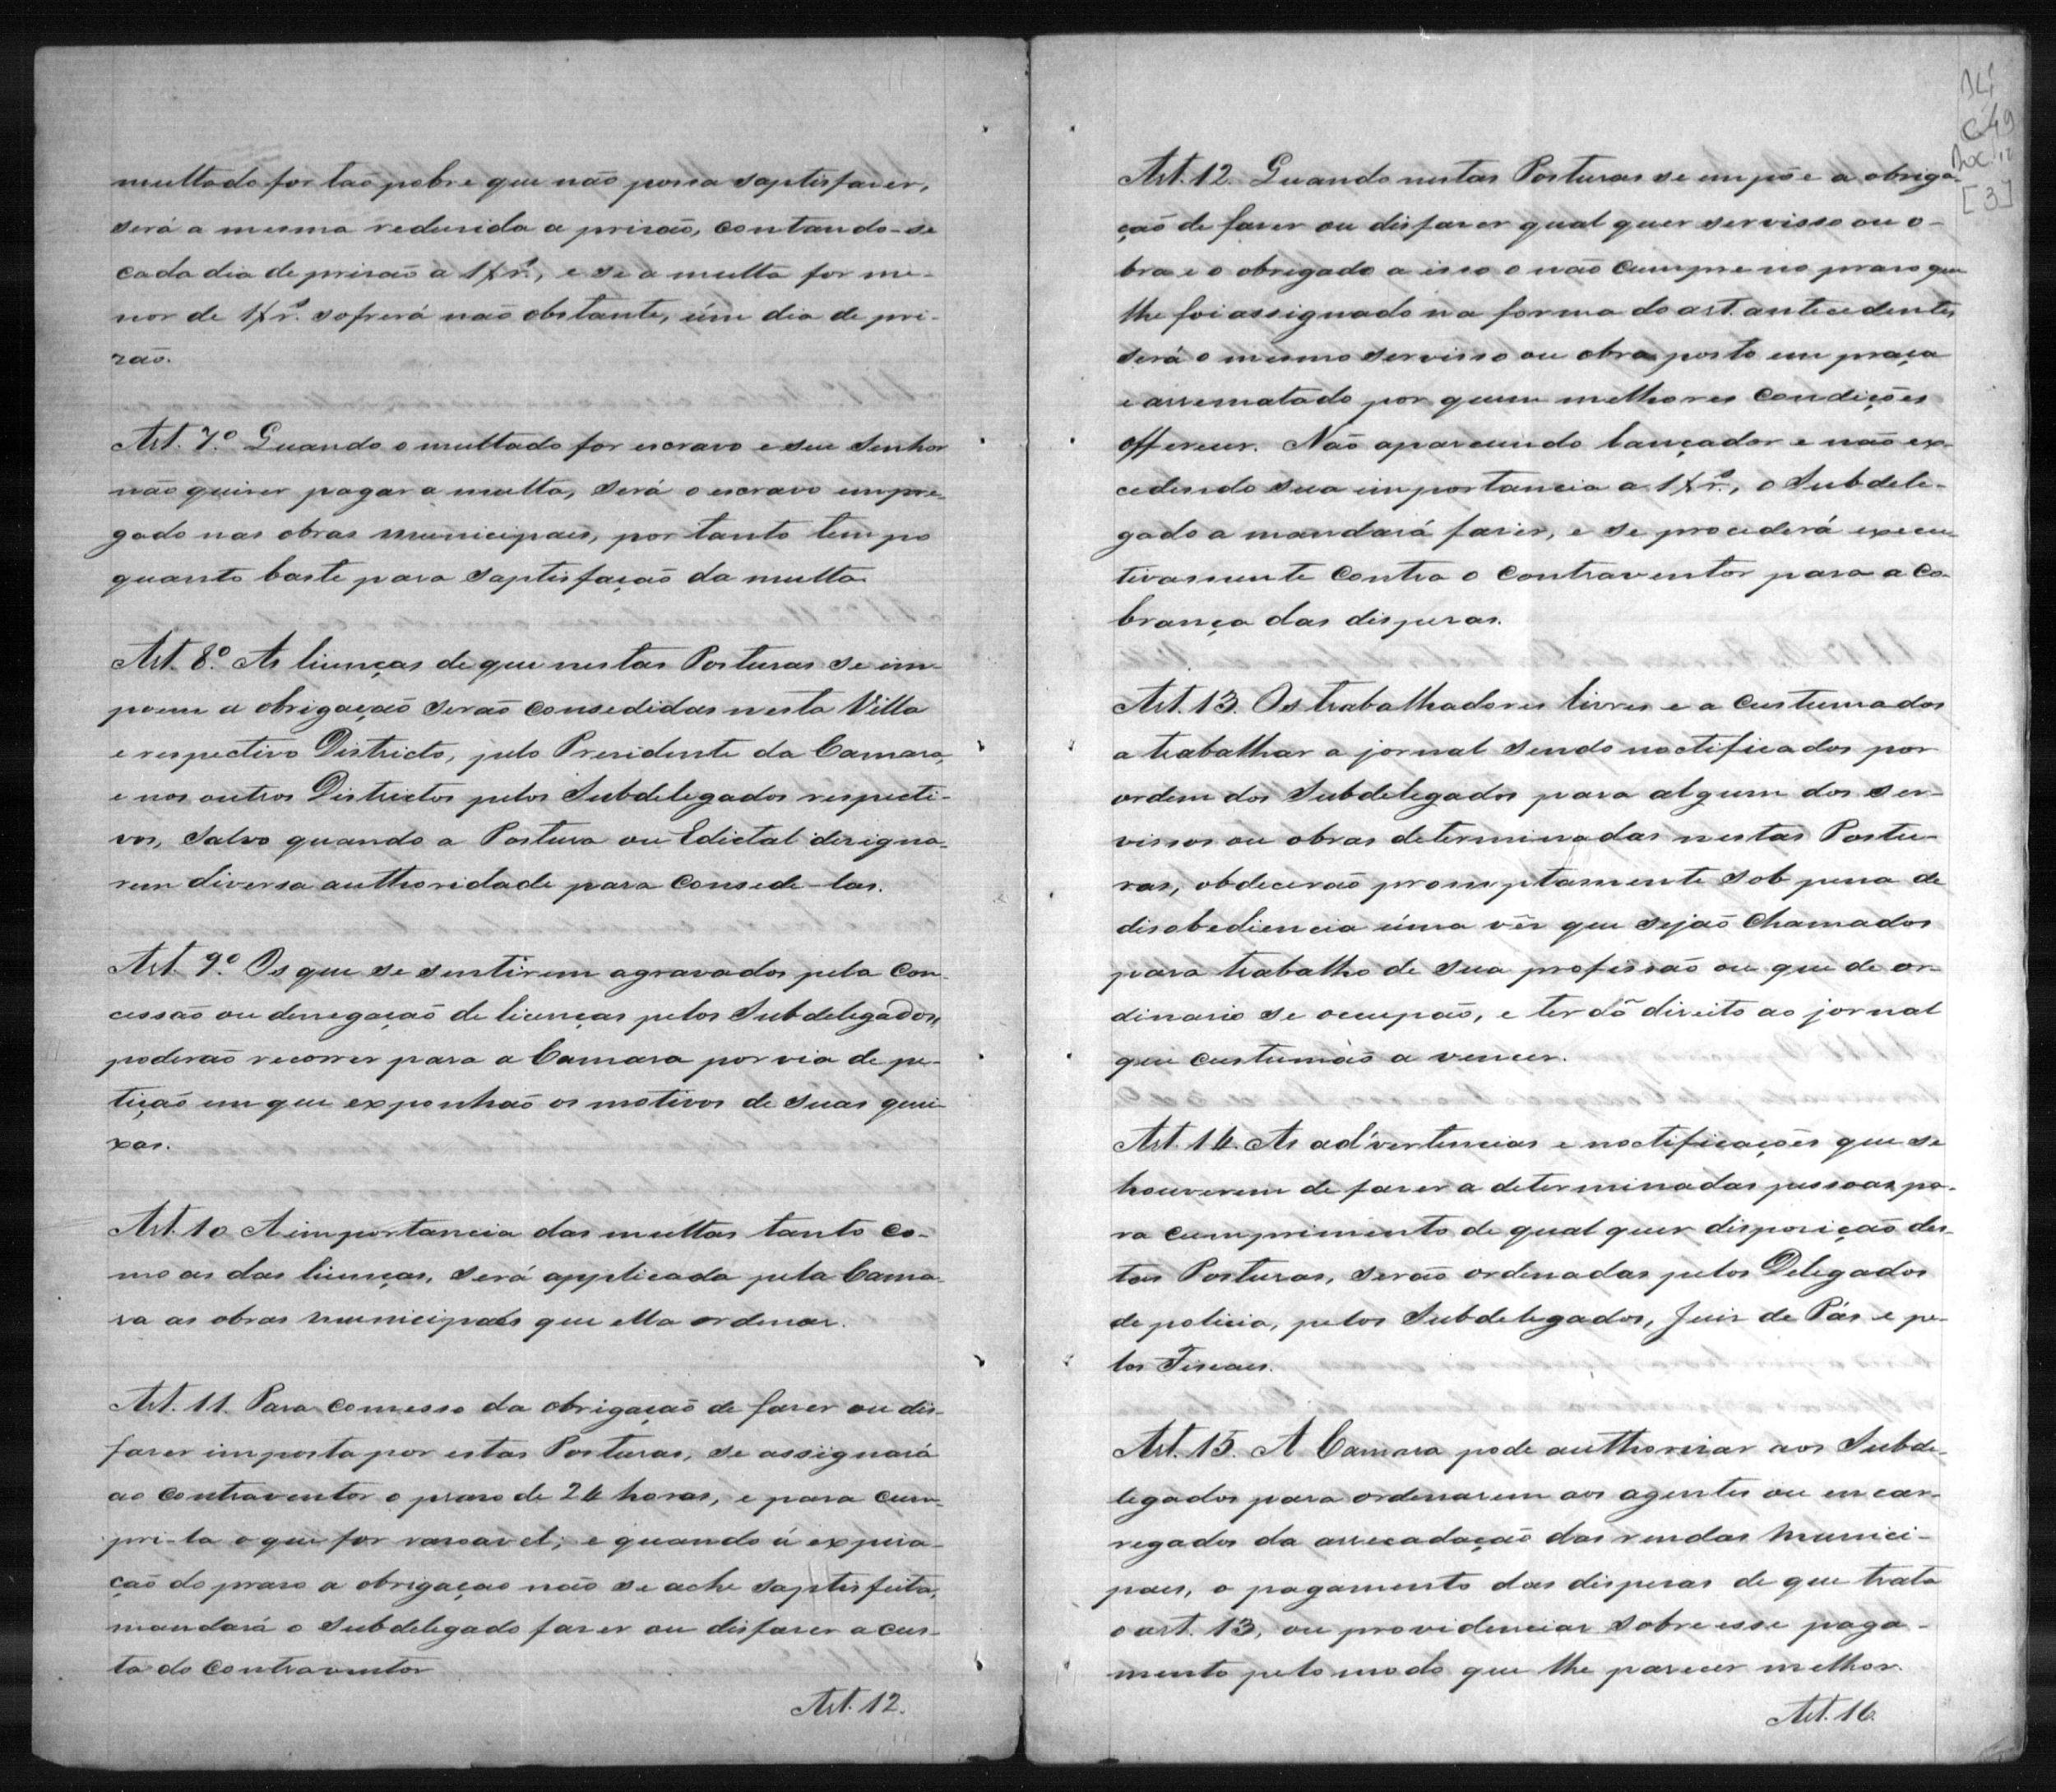 multado for taõ pobre que não possa saptisfazer,
será a mesma redusida a prisaõ, contando-se
cada dia de prisaõ a 1$rˢ., e se a multa for me-
nor de 1$rˢ. sofrerá naõ obstante, úm dia de pri-
zaõ.
Art. 7.º Quando o multado for escravo e seu Senhor
não quizer pagar a multa, será o escravo empre-
gado nas obras municipaes, por tanto tempo
quanto baste para saptisfaçaõ da multa
Art. 8.º As licenças de que nestas Posturas se im-
poem a obrigaçaõ seraõ consedidas nesta Villa
e respectivo Districto, pelo Presidente da Camara,
e nos outros Districtos pelos Subdelegados respecti-
vos, salvo quando a Postura ou Edictal designa-
rem diversa authoridade para consede-las.
Art. 9.º Os que se sentirem agravados pela con-
cessaõ ou denegaçaõ de licenças pelos Subdelegados,
poderaõ recorrer para a Camara por via de pe-
tiçaõ em que exponhaõ os motivos de suas quei-
xas.
Art. 10 A importancia das multas tanto co-
mo as das licenças, será applicada pela Cama-
ra as obras municipaes que ella ordenar.
Art. 11. Para comesso da obrigaçaõ de fazer ou dis-
fazer imposta por estas Posturas, se assignará
ao contraventor o praso de 24 horas, e para cum-
pri-la o que for rasoavel; e quando á expira-
çaõ do praso a obrigaçao naõ se ache saptisfeita,
mandará o Subdelegado fazer ou disfazer a cus-
ta do contraventor
Art. 12.
C 49
[3]
Art. 12. Quando nestas Posturas se impõe a obriga-
çaõ de fazer ou disfazer qual quer servisso ou o-
bra e o obrigado a isso o naõ cumpre no praso que
lhe foi assignado na forma do art. antecedente,
será o mesmo servisso ou obra posto em praça
e arrematado por quem melhores condições
offerecer. Naõ aparecendo lançador e naõ ex-
cedendo sua importancia a 1$rˢ., o Subdele-
gado a mandará fazer, e se procederá execu-
tivamente contra o contraventor para a co-
brança das dispesas.
Art. 13. Os trabalhadores livres e a custumados
a trabalhar a jornal sendo noctificados por
ordem dos Subdelegados para algum dos ser-
vissos ou obras determinadas nestas Postu-
ras, obdeceraõ promptamente sob pena de
disobediencia úma vês que sejaõ chamados
para trabalho de sua profissaõ ou que de or-
dinario se ocupaõ, e terdõ direito ao jornal
que custumaõ a vencer.
Art. 14. As ad'vertencias e noctificações que se
houverem de fazer a determinadas pessoas pa-
ra cumprimento de qual quer disposiçaõ des-
tas Posturas, seraõ ordenadas pelos Delegados
de policia, pelos Subdelegados, Juis de Pás e pe-
los Fiscaes.
Art. 15. A Camara pode authorisar aos Subde-
legados para ordenarem aos agentes ou encar-
regados da arrecadaçaõ das rendas Munici-
paes, o pagamento das dispesas de que trata
o art. 13, ou providenciar sobre esse paga-
mento pelo modo que lhe parecer melhor.
Art. 16.